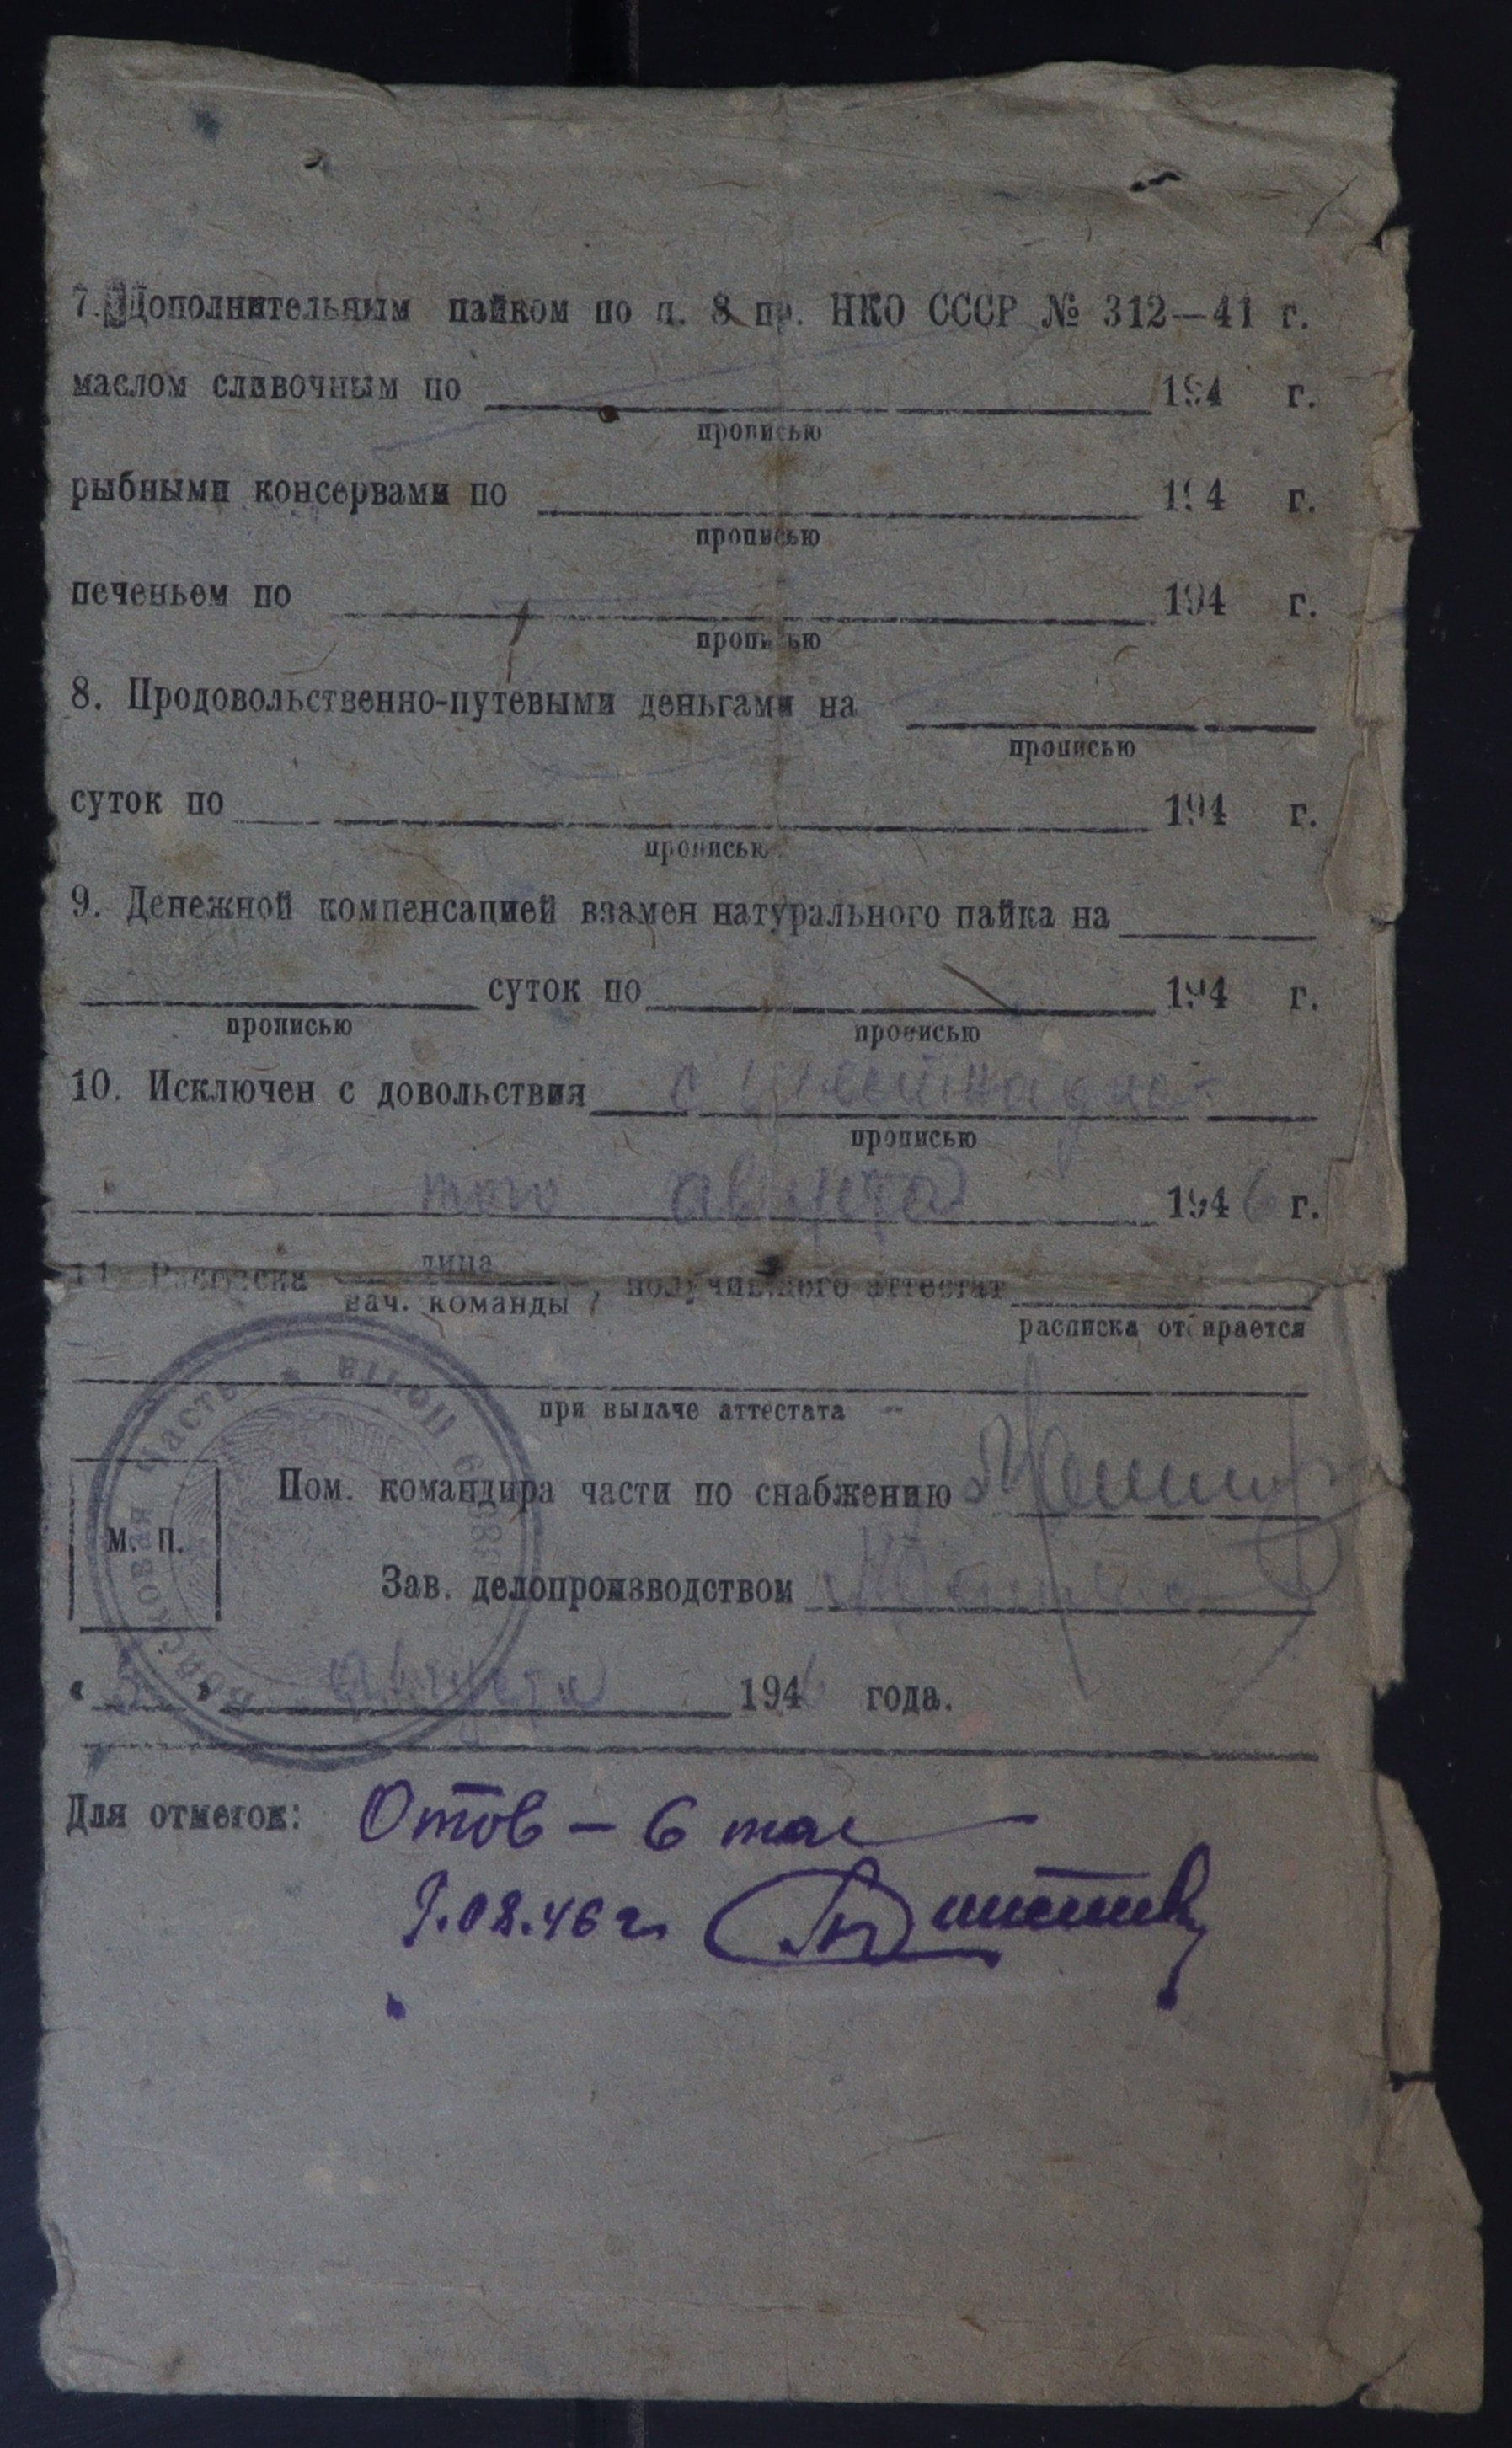 7. Дополнительным пайком по п. 8 пр. НКО СССР № 312—41 г.
маслом сливочным по 194 г.
прописью
рыбными консервами по 194 г.
прописью
печеньем по 194 г.
прописью
8. Продовольственно-путевыми деньгами на
прописью
суток по 194 г.
прописью
9. Денежной компенсацией взамен натурального пайка на
суток по 194 г.
прописью прописью
10. Исключен с довольствия с
прописью
того августа 1946 г.
11. Расписка лица
нач. команды, получившего аттестат
расписка отбирается
при выдаче аттестата
Войсковая Часть * Полевая Почта
Пом. командира части по снабжению
М. П.
Зав. делопроизводством
« » августа 194 года.
Для отметок: Отов – 6
9.08.46 г.